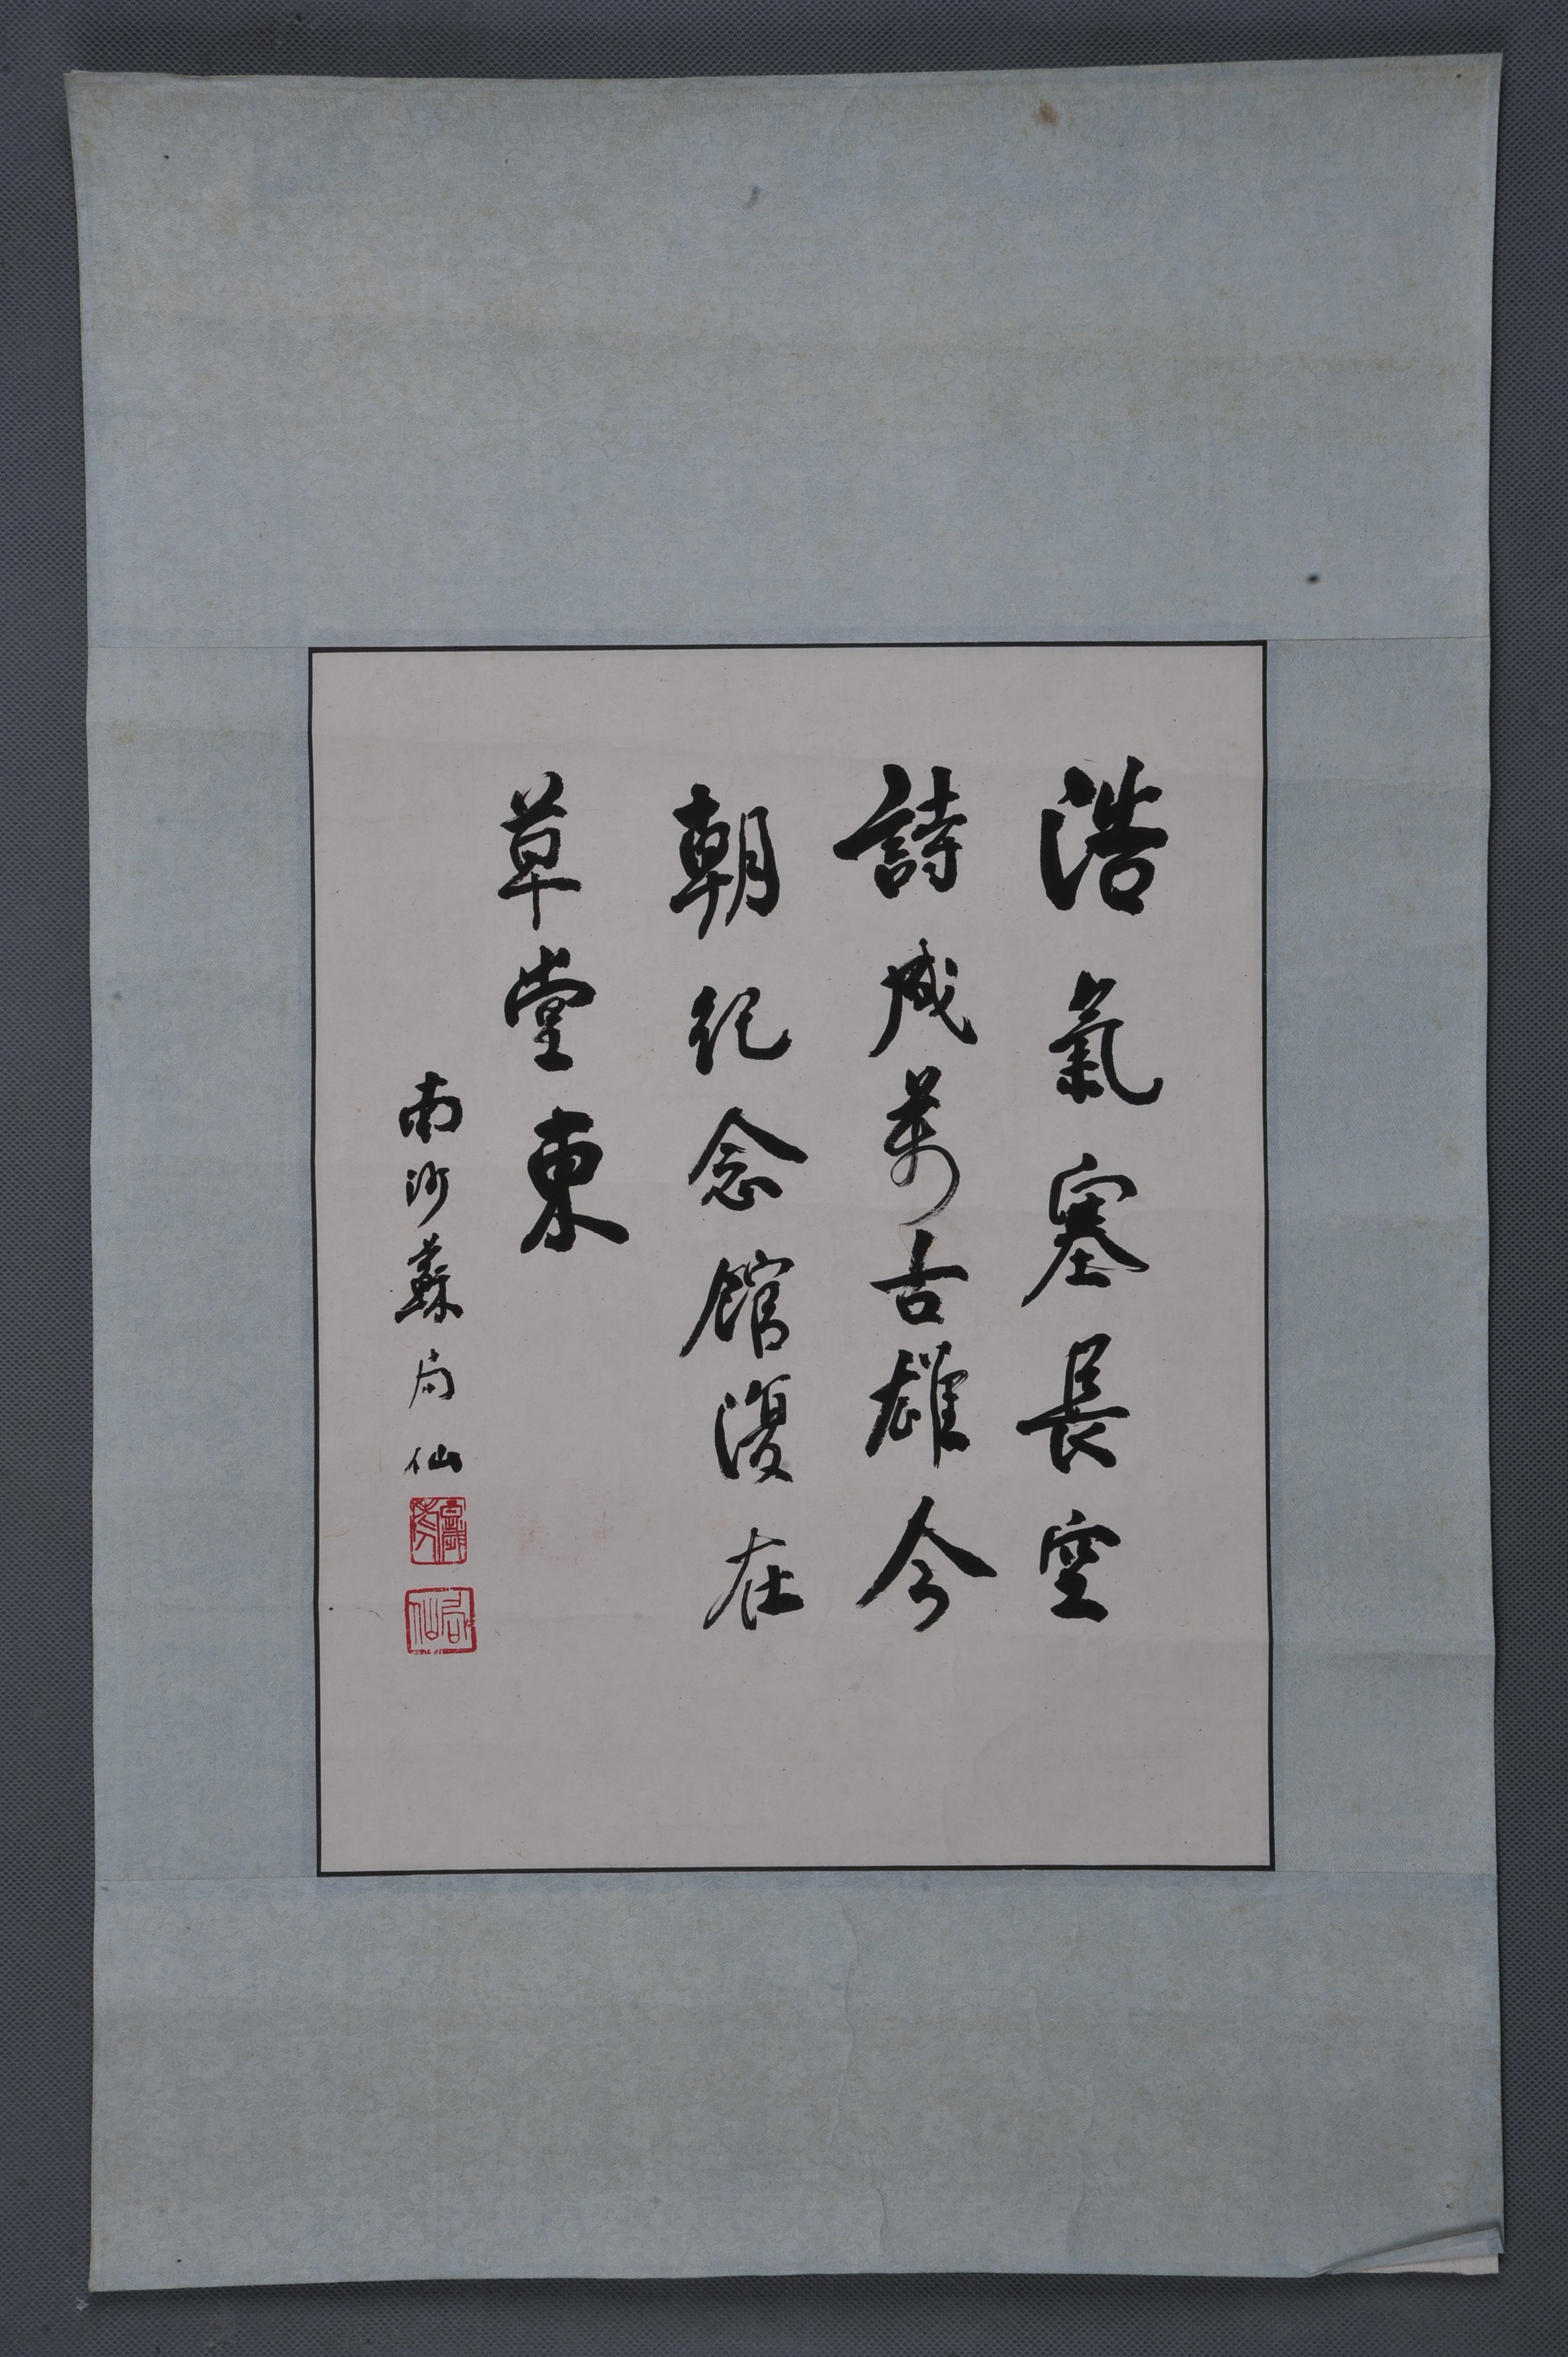 浩氣塞長空
詩成萬古雄今
朝紀念館復在
草堂東
南沙蘇局仙
蘇
局仙